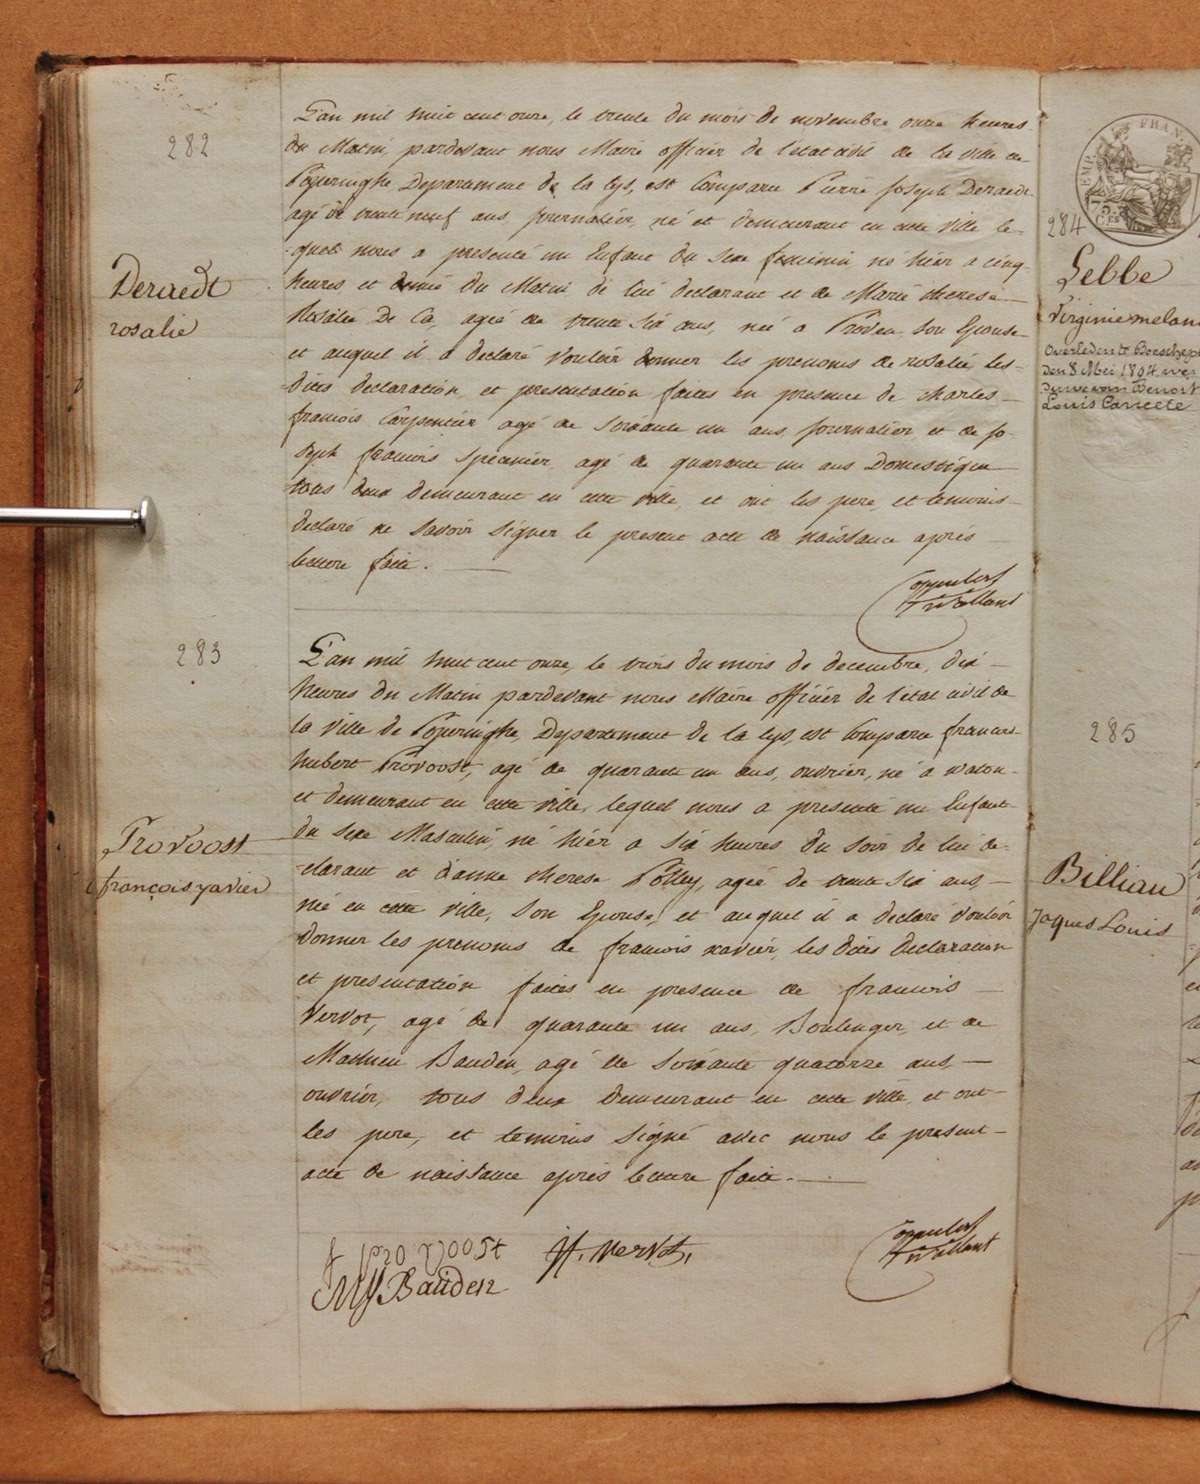 282
Deraedt
rosalie
L'an mil huit cent onze, le trente du mois de novembre onze heures
du Matin, pardevant nous Maire officier de l'etat civil de la ville de
Poperinghe Departement de la lys, est Comparu Pierre joseph Deraedt
agé de trente neuf ans journalier, né et demeurant en cette ville le-
quel nous a presenté un Enfant du sexe feminin né hier a cinq
heures et demie du Matin de lui declarant et de Marie therese
Rosalie De Ca, agée de trente six ans, née a Proven, son Epouse
et auquel il a declaré vouloir donner les prenoms de rosalie, les-
dites declaration et presentation faites en presence de charles
francois Carpentier agé de soixante un ans, journalier, et de jo-
seph francois agé de quarante un ans Domestique
tous deux demeurant en cette ville, et ont les pere, et temoins
declaré ne savoir signer le present acte de naissance après
lecture faite.
283
Provoost
françois xavier
L'an mil huit cent onze, le trois du mois de decembre, dix
heures du Matin pardevant nous Maire officier de l'etat civil de
la ville de Poperinghe, Departement de la lys, est Comparu francois
hubert Provoost, agé de quarante un ans, ouvrier, né a watou
et demeurant en cette ville, lequel nous a presenté un Enfant
du sexe Masculin, né hier a six heures du soir de lui de-
clarant et d'anne therese agée de trente six ans,
née en cette ville, son Epouse, et auquel il a declaré vouloir
Donner les prenoms de francois xavier, les dites declaration
et presentation faites en presence de francois
Vervot, agé de quarante un ans, Boulenger, et de
Mathieu Bauden, agé de soixante quatorze ans,
ouvrier, tous deux demeurant en cette ville, et ont
les pere, et temoins signé avec nous le present
acte de naissance après lecture faite.
f provoost
J f. vervot,
M J Bauden
EMP. FRAN
75
284
Lebbe
Virginie melan
Overleden te Boeschepe
den 8 Mei 1894
Louis
285
Billiau
Jaques Louis